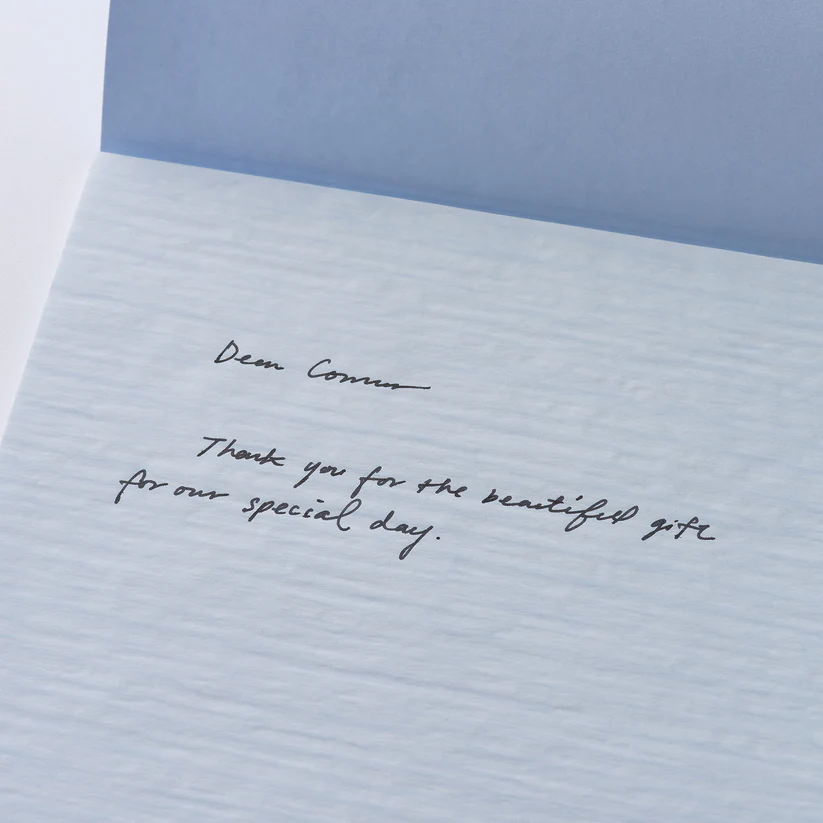 Dear
Thank you for the beautiful gift
for our special day.